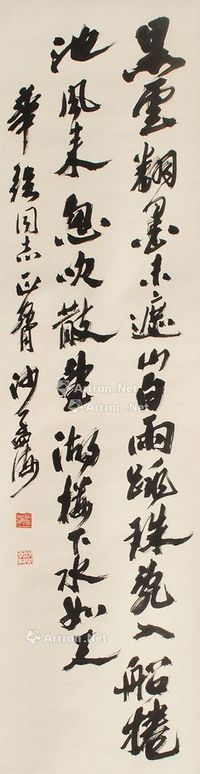 黑雲翻墨未遮山白雨跳珠亂入船捲
地風来忽吹散望湖樓下水如天
華强同志正 沙孟海
Artron.Net
Artron.Net
Artron.Net
Artron.Net